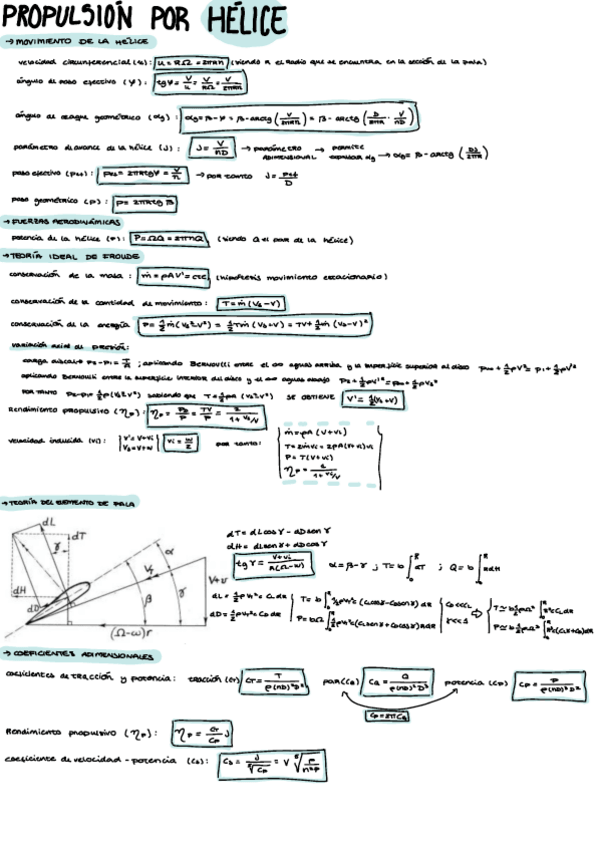 PROPULSIÓN POR HÉLICE
→ MOVIMIENTO DE LA HÉLICE
velocidad circunferencial (u): u = RΩ = 2πRn (siendo R el radio que se encuentra en la sección de la pala)
ángulo de paso efectivo (φ): tgφ = V/u = V/RΩ = V/2πRn
ángulo de ataque geométrico (αg): αg = β - φ = β - arctg (V/2πRn) = β - arctg (D/2πR · V/nD)
parámetro de avance de la hélice (J): J = V/nD → parámetro adimensional → permite expresar αg → αg = β - arctg (DJ/2πR)
paso efectivo (pef): pef = 2πRtgφ = V/n → por tanto J = pef/D
paso geométrico (p): p = 2πRtg β
→ FUERZAS AERODINÁMICAS
potencia de la hélice (P): P = ΩQ = 2πnQ (siendo Q el par de la hélice)
→ TEORÍA IDEAL DE FROUDE
conservación de la masa: ṁ = ρAV' = cte (hipótesis movimiento estacionario)
conservación de la cantidad de movimiento: T = ṁ (Vs - V)
conservación de la energía P = ½ṁ(Vs² - V²) = ½Tṁ (Vs + V) = TV + ½ṁ (Vs - V)²
variación axial de presión:
carga discal: P2 - P1 = T/A ; aplicando Bernoulli entre el aguas arriba y la superficie superior al disco p∞ + ½ρV² = p1 + ½ρV'²
aplicando Bernoulli entre la superficie inferior del disco y el aguas abajo P2 + ½ρV'² = p∞ + ½ρVs²
por tanto P2 - P1 = ½ρ(Vs² - V²) sabiendo que T = ½ρA (Vs² - V²) SE OBTIENE V' = ½(Vs + V)
Rendimiento propulsivo (ηp): ηp = = TV/P = 2/(1 + Vs/V)
velocidad inducida (vi): V' = V + vi
Vs = V + w
vi = w/2
por tanto:
ṁ = ρA (V + vi)
T = 2ṁvi = 2ρA(V + vi)vi
P = T(V + vi)
ηp = 1/(1 + vi/V)
→ TEORÍA DEL ELEMENTO DE PALA
dL
dT
γ
α
dH
dD
β
γ
(Ω-ω)r
dT = dLcosγ - dDsenγ
dH = dLsenγ + dDcosγ
tgγ = (V + vi)/R(Ω - ω)
α = β - γ ; T = b∫ dT ; Q = b∫ RdH
→ COEFICIENTES ADIMENSIONALES
coeficientes de tracción y potencia: tracción (CT) CT = T/ρ(nD)²D² par (CQ) CQ = Q/ρ(nD)²D³ potencia (CP) CP = P/ρ(nD)³D²
CP = 2πCQ
Rendimiento propulsivo (ηp): ηp = CT/CP J
coeficiente de velocidad - potencia (Cs): Cs = J/⁵√CP = V ⁵√ρ/n²P